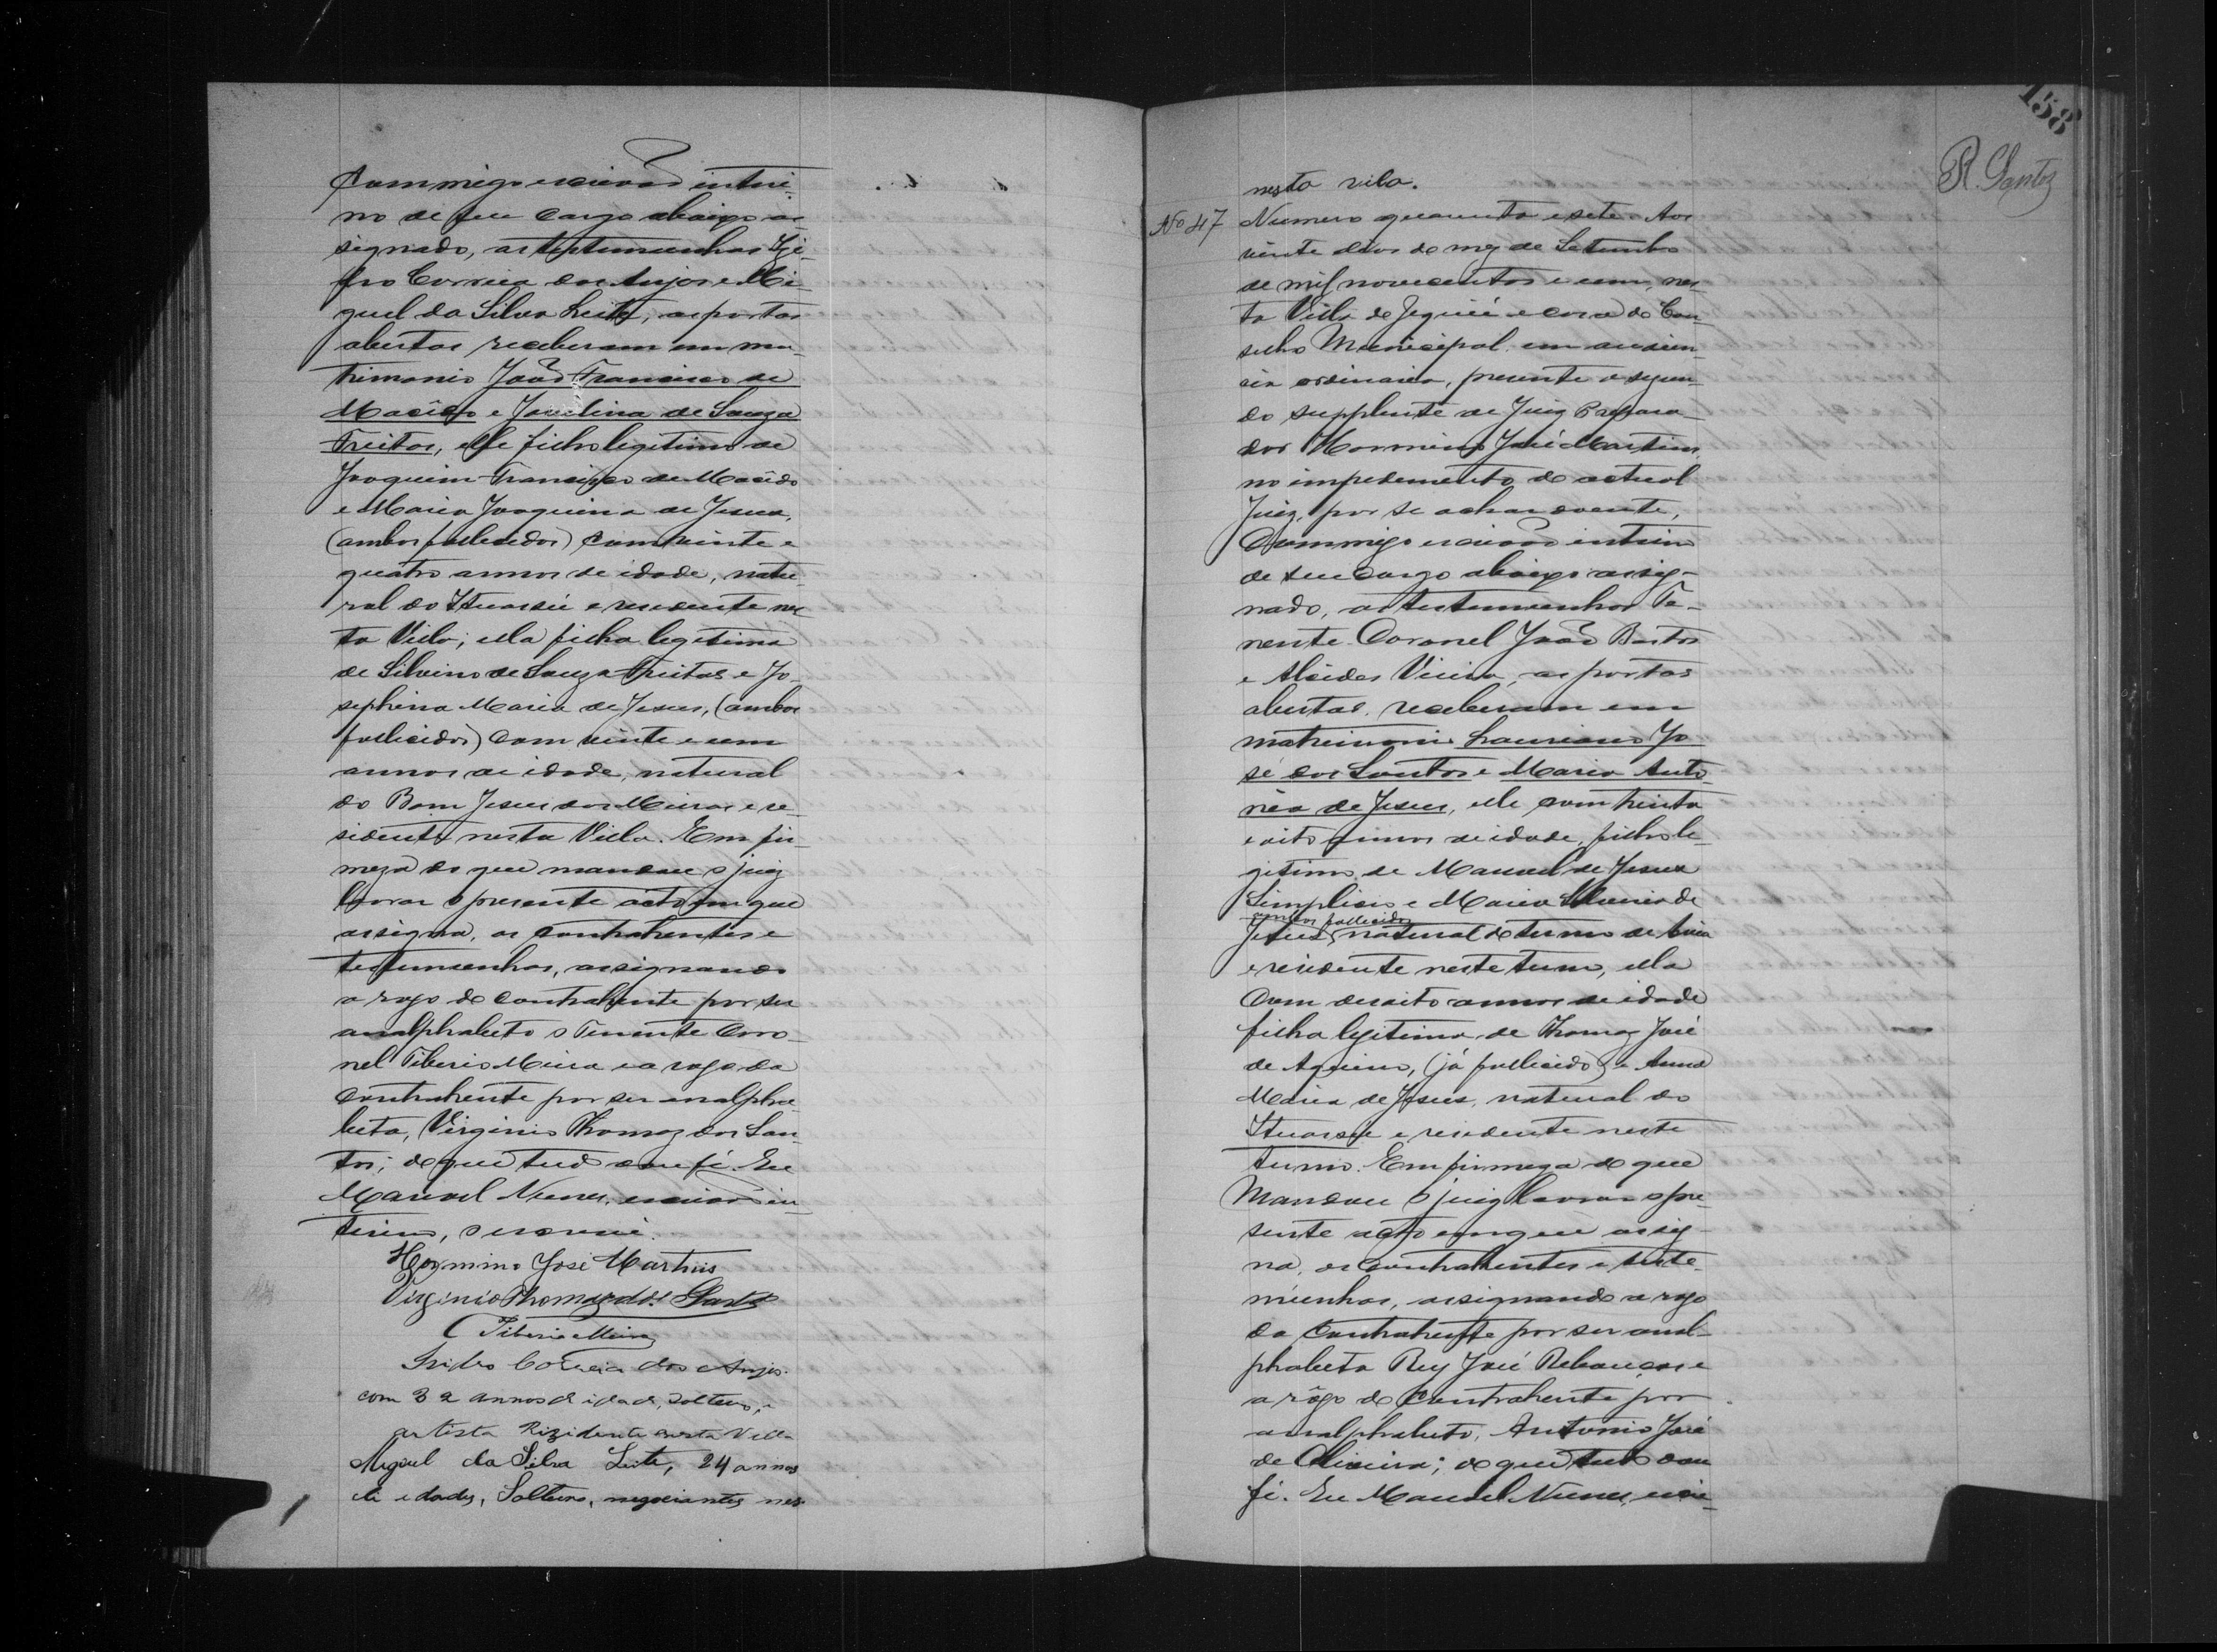 Commigo escrivão interi-
no de seu cargo abaixo as-
signado, as testemunhas Izi-
dro Correia dos Anjos e Mi-
guel da Silva Leite, as portas
abertas receberam em ma-
trimonio João Francisco de
Macêdo e Jovelina de Souza
Freitas, elle filho legitimo de
Joaquim Francisco de Macêdo
e Maria Joaquina de Jesus,
(ambos fallecidos) com vinte e
quatro annos de idade, natu-
ral do Ituassú e residente nes-
ta Villa; ella filha legitima
de Silvino de Souza Freitas e Jo-
sephina Maria de Jesus, (ambos
fallecidos) com vinte e um
annos de idade, natural
do Bom Jesus dos Meiras e re-
sidente nesta Villa. Em fir-
meza do que mandou o juiz
lavrar o presente acto em que
assigna, os contrahentes e
testemunhas, assignando
a rogo do contrahente por ser
analphabeto o Tenente Coro-
nel Tiberio Meira e a rogo da
contrahente por ser analpha-
beta, Virginio Thomaz dos San-
tos; do que tudo dou fé. Eu
Manoel Nunes, escrivão in-
terino, o escrevi.
Hormino José Martins
Virginio Thomaz dos Santos
Tiberio Meira
Isidro Correia dos Anjos
com 32 annos de idade, solteiro,
artista Rizidente nesta Villa
Miguel da Silva Leite, 24 annos
de edade, Solteiro, negociante, nes-
158
R. Santos
nesta vila.
No 47 Numero quarenta e sete. Aos
vinte dias do mez de Setembro
de mil novecentos e um, nes-
ta Villa de Jequié e casa do Con-
selho Municipal em audien-
cia ordinaria, presente o segun-
do supplente de Juiz Prepara-
dor Hormino José Martins
no impedimento do actual
Juiz, por se achar doente,
Commigo escrivão interino
de seu cargo abaixo assig-
nado, as testemunhas Te-
nente Coronel João Bastos
e Alcides Vieira, as portas
abertas, receberam em
matrimonio Lauriano Jo-
sé dos Santos e Maria Anto-
nia de Jesus, elle com trinta
e oito annos de idade, filho le-
gitimo de Manoel de Jesus
Simplicio e Maria de
ambos fallecidos
Jesus, natural do termo de
e residente neste termo, ella
Com desoito annos de idade
filha legitima de Thomaz José
de Aquino, (já fallecido) e Anna
Maria de Jesus, natural do
Ituassú e residente neste
termo. Em firmeza do que
Mandou o juiz lavrar o pre-
sente acto em que assig-
na, os contrahentes e teste-
munhas, assignando a rogo
da contrahente por ser anal-
phabeta Ruy José Rebouças e
a rôgo do Contrahente por
analphabeto, Antonio José
de Oliveira; do que tudo dou
fé. Eu Manoel Nunes, escri-